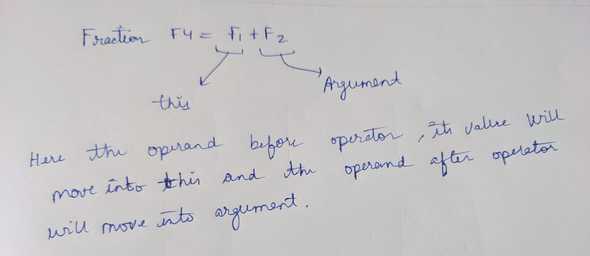 Fraction F4 = F1 + F2
this
Argument
Here the operand before operator, its value will
move into this and the operand after operator
will move into argument.